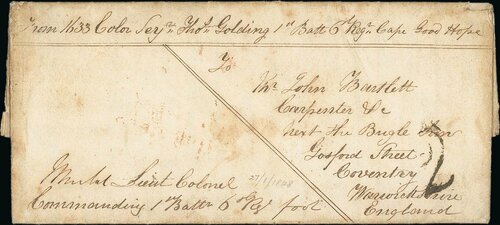 From 1633 Color Serj.t Tho.s Golding 1st Batt 6th Reg.t Cape Good Hope
To
Mr John Bartlett
Carpenter &c
next the Bugle Inn
Gosford Street
Coventry
Warwickshire
England
2
27/1/1848
Lieut Colonel
Commanding 1st Battn 6th Reg.t foot